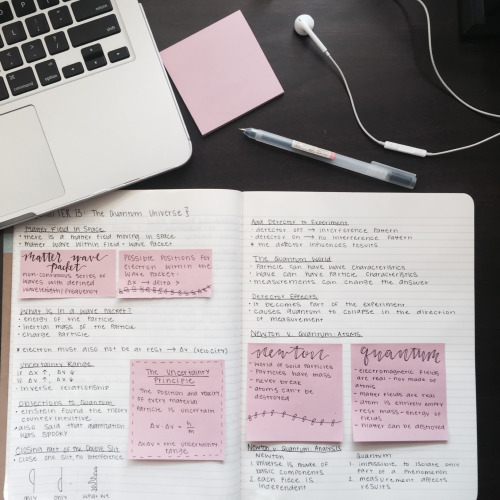 CHAPTER 13: The Quantum Universe
Matter Field in Space
• there is a matter field moving in space
• matter wave within field = wave packet
matter wave
packet
non-continuous series of
waves with defined
wavelength/frequency
Possible positions for
electron within the
wave packet:
Δx → delta x
What is in a wave packet?
• energy of the particle
• inertial mass of the particle
• charge particle
* electron must also not be at rest → Δv (velocity)
Uncertainty Range
if Δx ↑, Δv ↓
if Δv ↑, Δx ↓
• inverse relationship
The Uncertainty
Principle
The position and velocity
of every material
particle is uncertain
Δx·Δv ≈ h/m
Δx·Δv = the uncertainty
range
Objections to Quantum
• einstein found the theory
counterintuitive
• also said that
was spooky
Closing part of the Double Slit
• close one slit, no interference
Add Detector to Experiment
• detector off → interference pattern
• detector on → no interference pattern
* the detector influences results
The Quantum World
• particle can have wave characteristics
• wave can have particle characteristics
• measurements can change the answer
Detector Effects
• it becomes part of the experiment
• causes quantum to collapse in the direction
of measurement
Newton v. Quantum: Atoms
newton
• world of solid particles
• particles have mass
• never break
• atoms can't be
destroyed
quantum
• electromagnetic fields
are real - not made of
atoms
• matter fields are real
• atom is entirely empty
• rest mass = energy of
fields
• matter can be destroyed
Newton v. Quantum: Analysis
Newton
1. universe is made of
basic components
2. each piece is
independent
Quantum
1. impossible to isolate only
part of a phenomenon
2. measurement affects
results